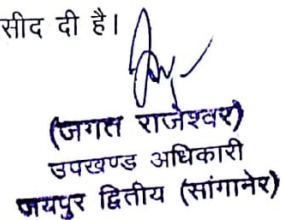 सीद दी है।
(जगत राजेश्वर)
उपखण्ड अधिकारी
जयपुर द्वितीय (सांगानेर)